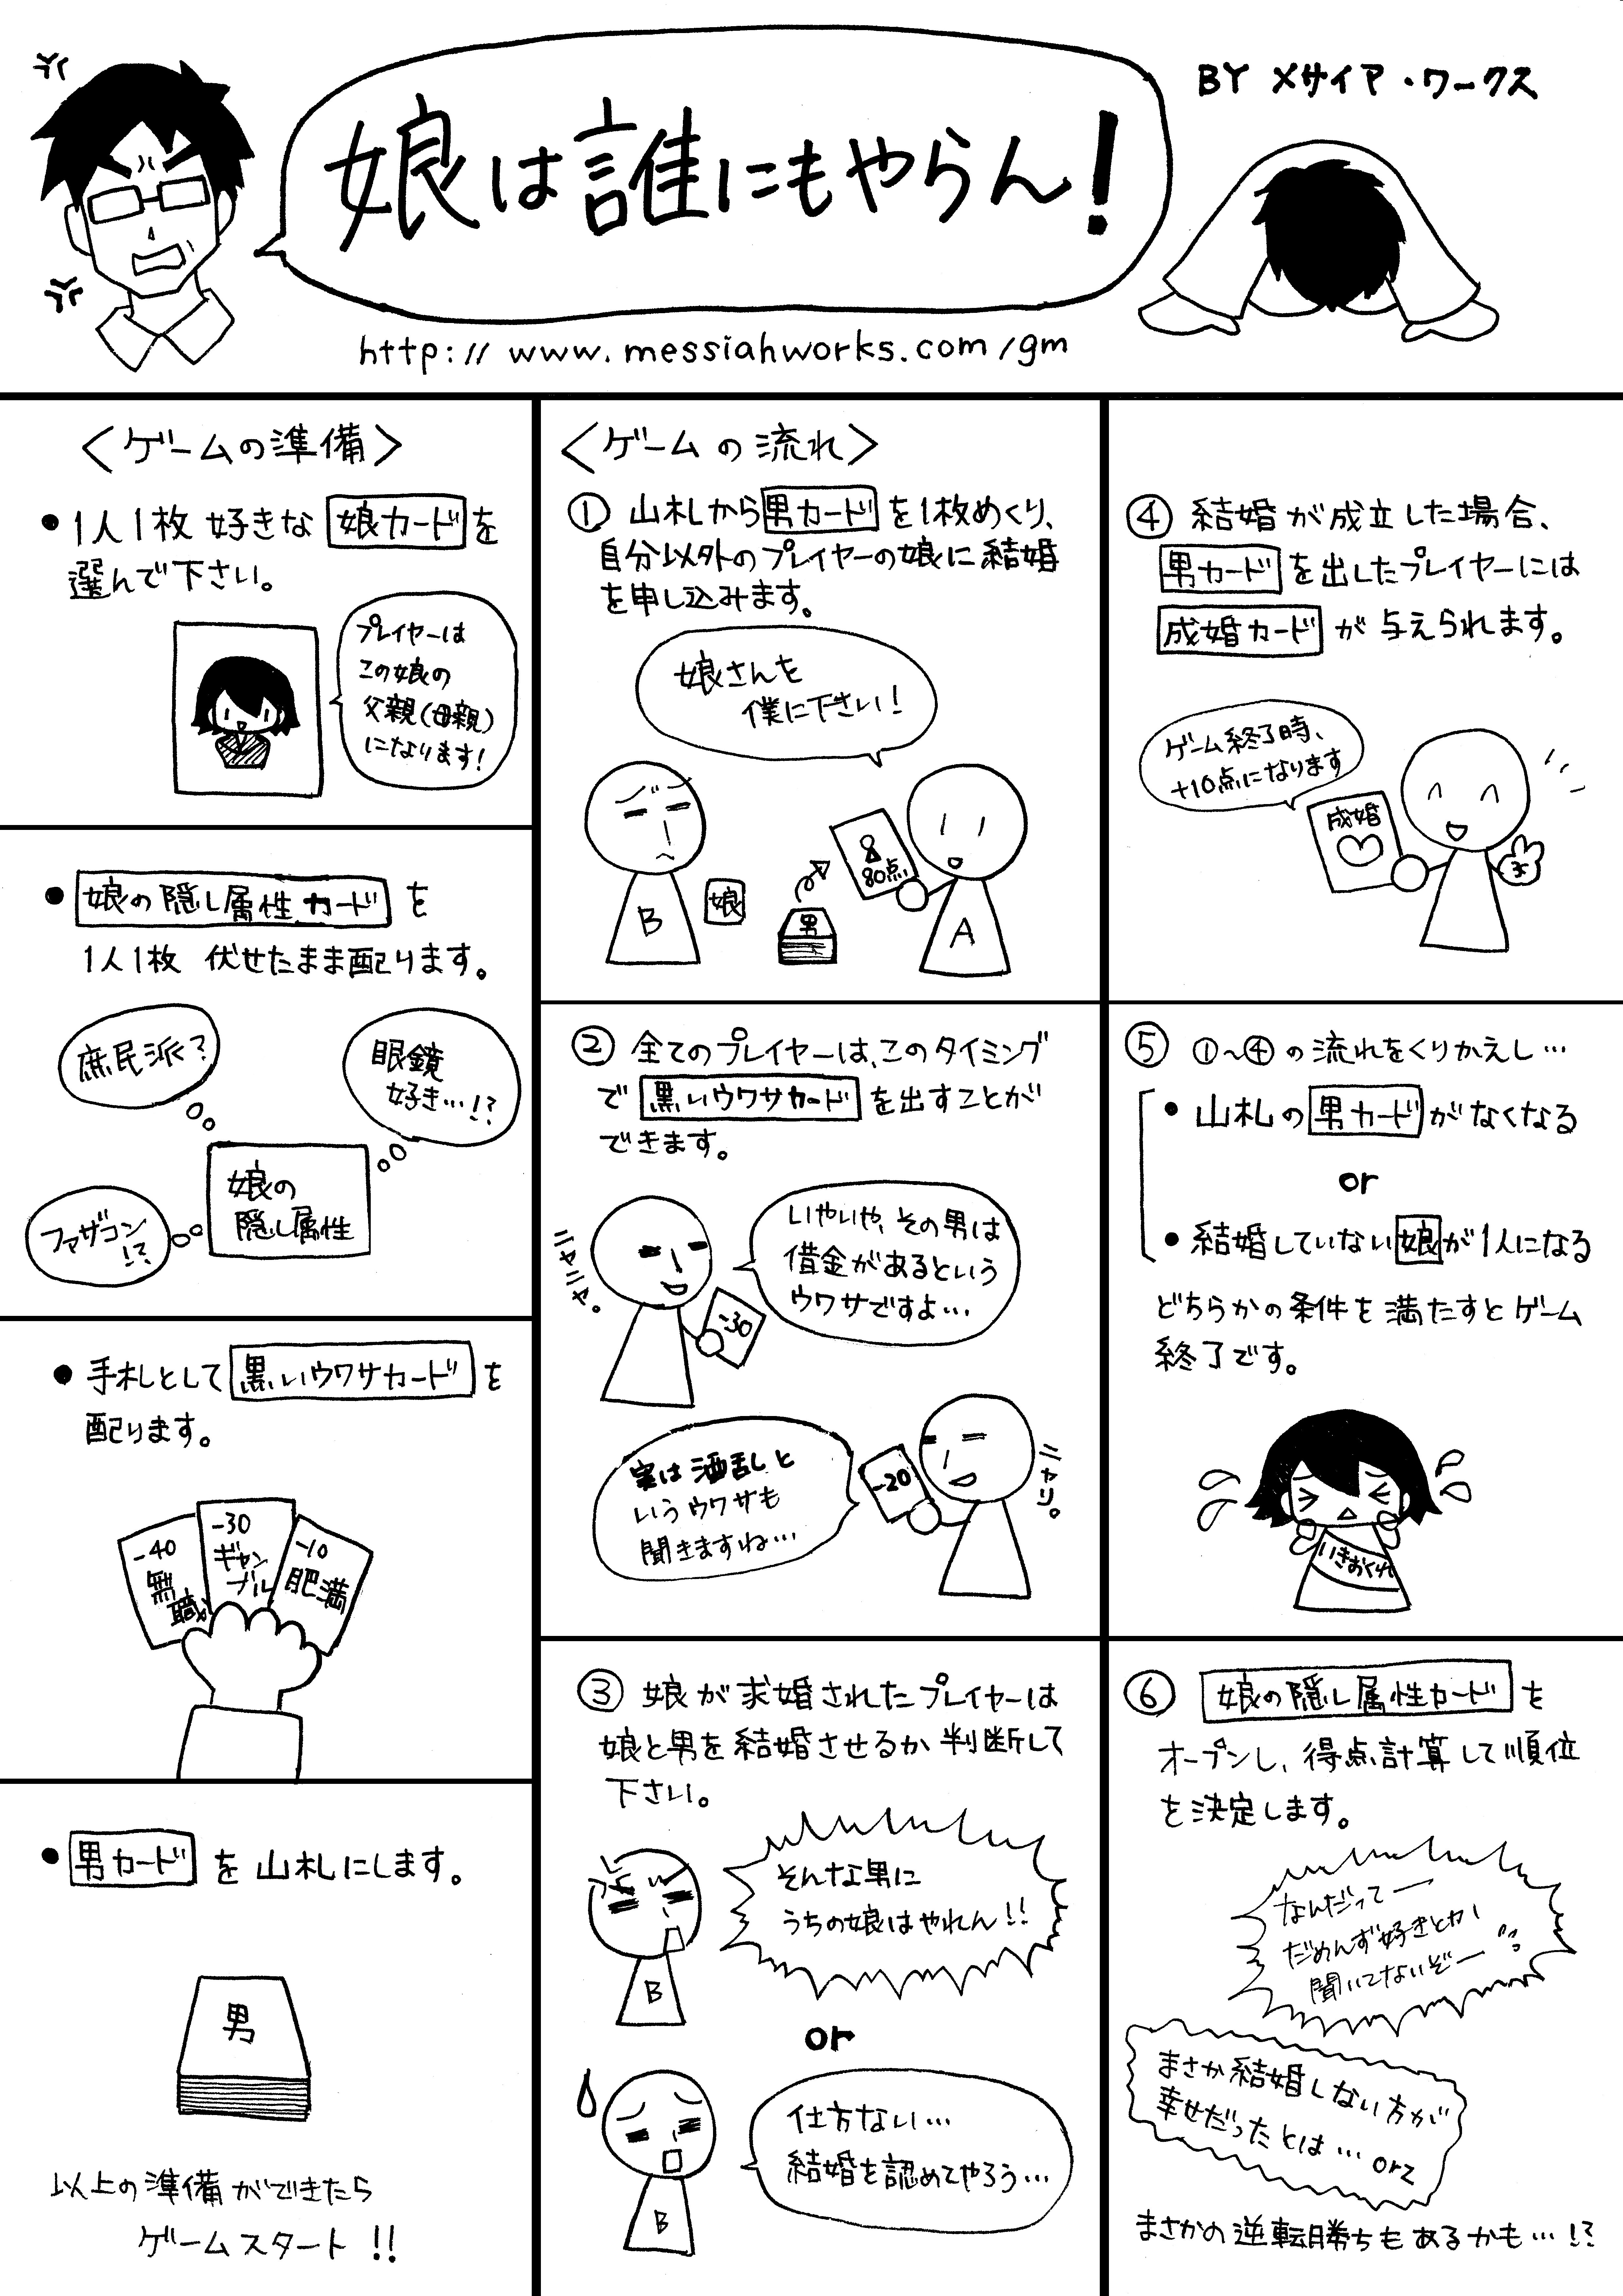 娘は誰にもやらん!
BY メサイア・ワークス
http://www.messiahworks.com/gm
<ゲームの準備>
● 1人1枚 好きな 娘カード を
選んで下さい。
プレイヤーは
この娘の
父親(母親)
になります!
● 娘の隠し属性カード を
1人1枚 伏せたまま配ります。
庶民派?
眼鏡
好き…!?
ファザコン
!?
娘の
隠し属性
● 手札として 黒いウワサカード を
配ります。
-40
無職
-30
ギャン
ブル
-10
肥満
● 男カード を 山札にします。
男
以上の準備ができたら
ゲームスタート!!
<ゲームの流れ>
① 山札から 男カード を1枚めくり、
自分以外のプレイヤーの娘に結婚
を申し込みます。
娘さんを
僕に下さい!
B
娘
男
80点
A
② 全てのプレイヤーは、このタイミング
で 黒いウワサカード を出すことが
できます。
ニヤニヤ。
いやいや、その男は
借金があるという
ウワサですよ…
-30
実は酒乱と
いうウワサも
聞きますね…
-20
ニヤリ。
③ 娘が求婚されたプレイヤーは
娘と男を結婚させるか判断して
下さい。
そんな男に
うちの娘はやれん!!
B
or
仕方ない…
結婚を認めてやろう…
B
④ 結婚が成立した場合、
男カード を出したプレイヤーには
成婚カード が 与えられます。
ゲーム終了時、
+10点になります
成婚
⑤ ①~④の流れをくりかえし…
● 山札の 男カード がなくなる
or
● 結婚していない 娘 が1人になる
どちらかの条件を満たすとゲーム
終了です。
いきおくれ
⑥ 娘の隠し属性カード を
オープンし、得点計算して順位
を決定します。
なんだってー
だめんず好きとか
聞いてないぞー!?
まさか結婚しない方が
幸せだったとは… orz
まさかの逆転勝ちもあるかも…!?